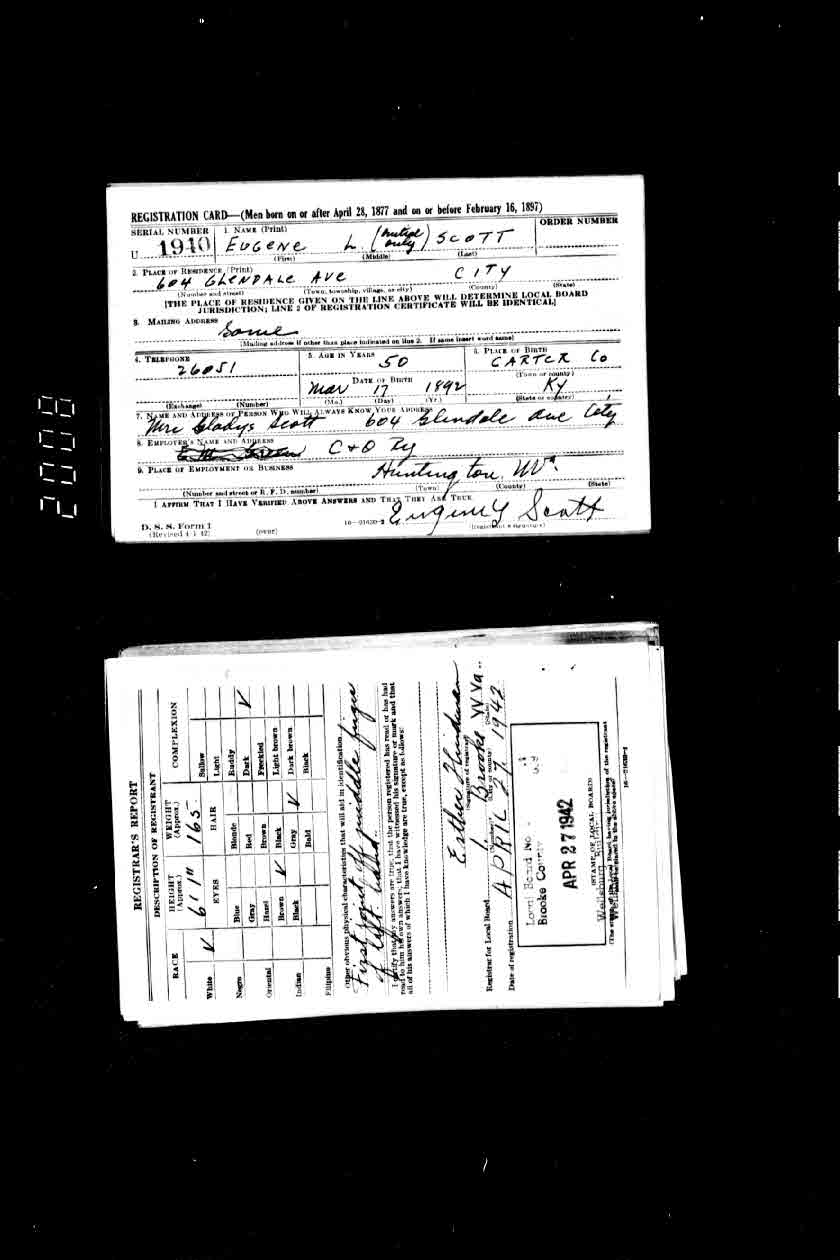 REGISTRATION CARD—(Men born on or after April 28, 1877 and on or before February 16, 1897)
SERIAL NUMBER 1. NAME (Print) ORDER NUMBER
U 1940 EUGENE L. (initial only) SCOTT
(First) (Middle) (Last)
2. PLACE OF RESIDENCE (Print)
604 GLENDALE AVE CITY
(Number and street) (Town, township, village, or city) (County) (State)
[THE PLACE OF RESIDENCE GIVEN ON THE LINE ABOVE WILL DETERMINE LOCAL BOARD
JURISDICTION; LINE 2 OF REGISTRATION CERTIFICATE WILL BE IDENTICAL]
3. MAILING ADDRESS
Same
[Mailing address if other than place indicated on line 2. If same insert word same]
4. TELEPHONE 5. AGE IN YEARS 6. PLACE OF BIRTH
26051 50 CARTER Co
DATE OF BIRTH (Town or county)
Mar 17 1892 Ky
(Exchange) (Number) (Mo.) (Day) (Yr.) (State or country)
7. NAME AND ADDRESS OF PERSON WHO WILL ALWAYS KNOW YOUR ADDRESS
Mrs Gladys Scott 604 Glendale Ave City
8. EMPLOYER'S NAME AND ADDRESS
C+O Ry
9. PLACE OF EMPLOYMENT OR BUSINESS
Huntington, WVa.
(Number and street or R. F. D. number) (Town) (County) (State)
I AFFIRM THAT I HAVE VERIFIED ABOVE ANSWERS AND THAT THEY ARE TRUE.
D. S. S. Form 1
(Revised 4-1-42) (over) 16—21630-2 Eugene L Scott
(Registrant's signature)
2008
REGISTRAR'S REPORT
DESCRIPTION OF REGISTRANT
RACE HEIGHT (Approx.) WEIGHT (Approx.) COMPLEXION
6'1" 165
White ✓ EYES HAIR Sallow
Light
Negro Blue Blonde Ruddy
Gray Red Dark ✓
Oriental Hazel Brown Freckled
Brown ✓ Black Light brown
Indian Black Gray ✓ Dark brown
Bald Black
Filipino
Other obvious physical characteristics that will aid in identification
First joint off middle finger
of left hand
I certify that my answers are true; that the person registered has read or has had
read to him his own answers; that I have witnessed his signature or mark and that
all of his answers of which I have knowledge are true, except as follows:
Esther Hindman
(Signature of registrar)
Registrar for Local Board 1 Brooke W.Va.
(Number) (City or county) (State)
Date of registration APRIL 27, 1942
Local Board No.
Brooke County
APR 27 1942
Wellsburg
(STAMP OF LOCAL BOARD)
(The stamp of the Local Board having jurisdiction of the registrant
shall be placed in the above space)